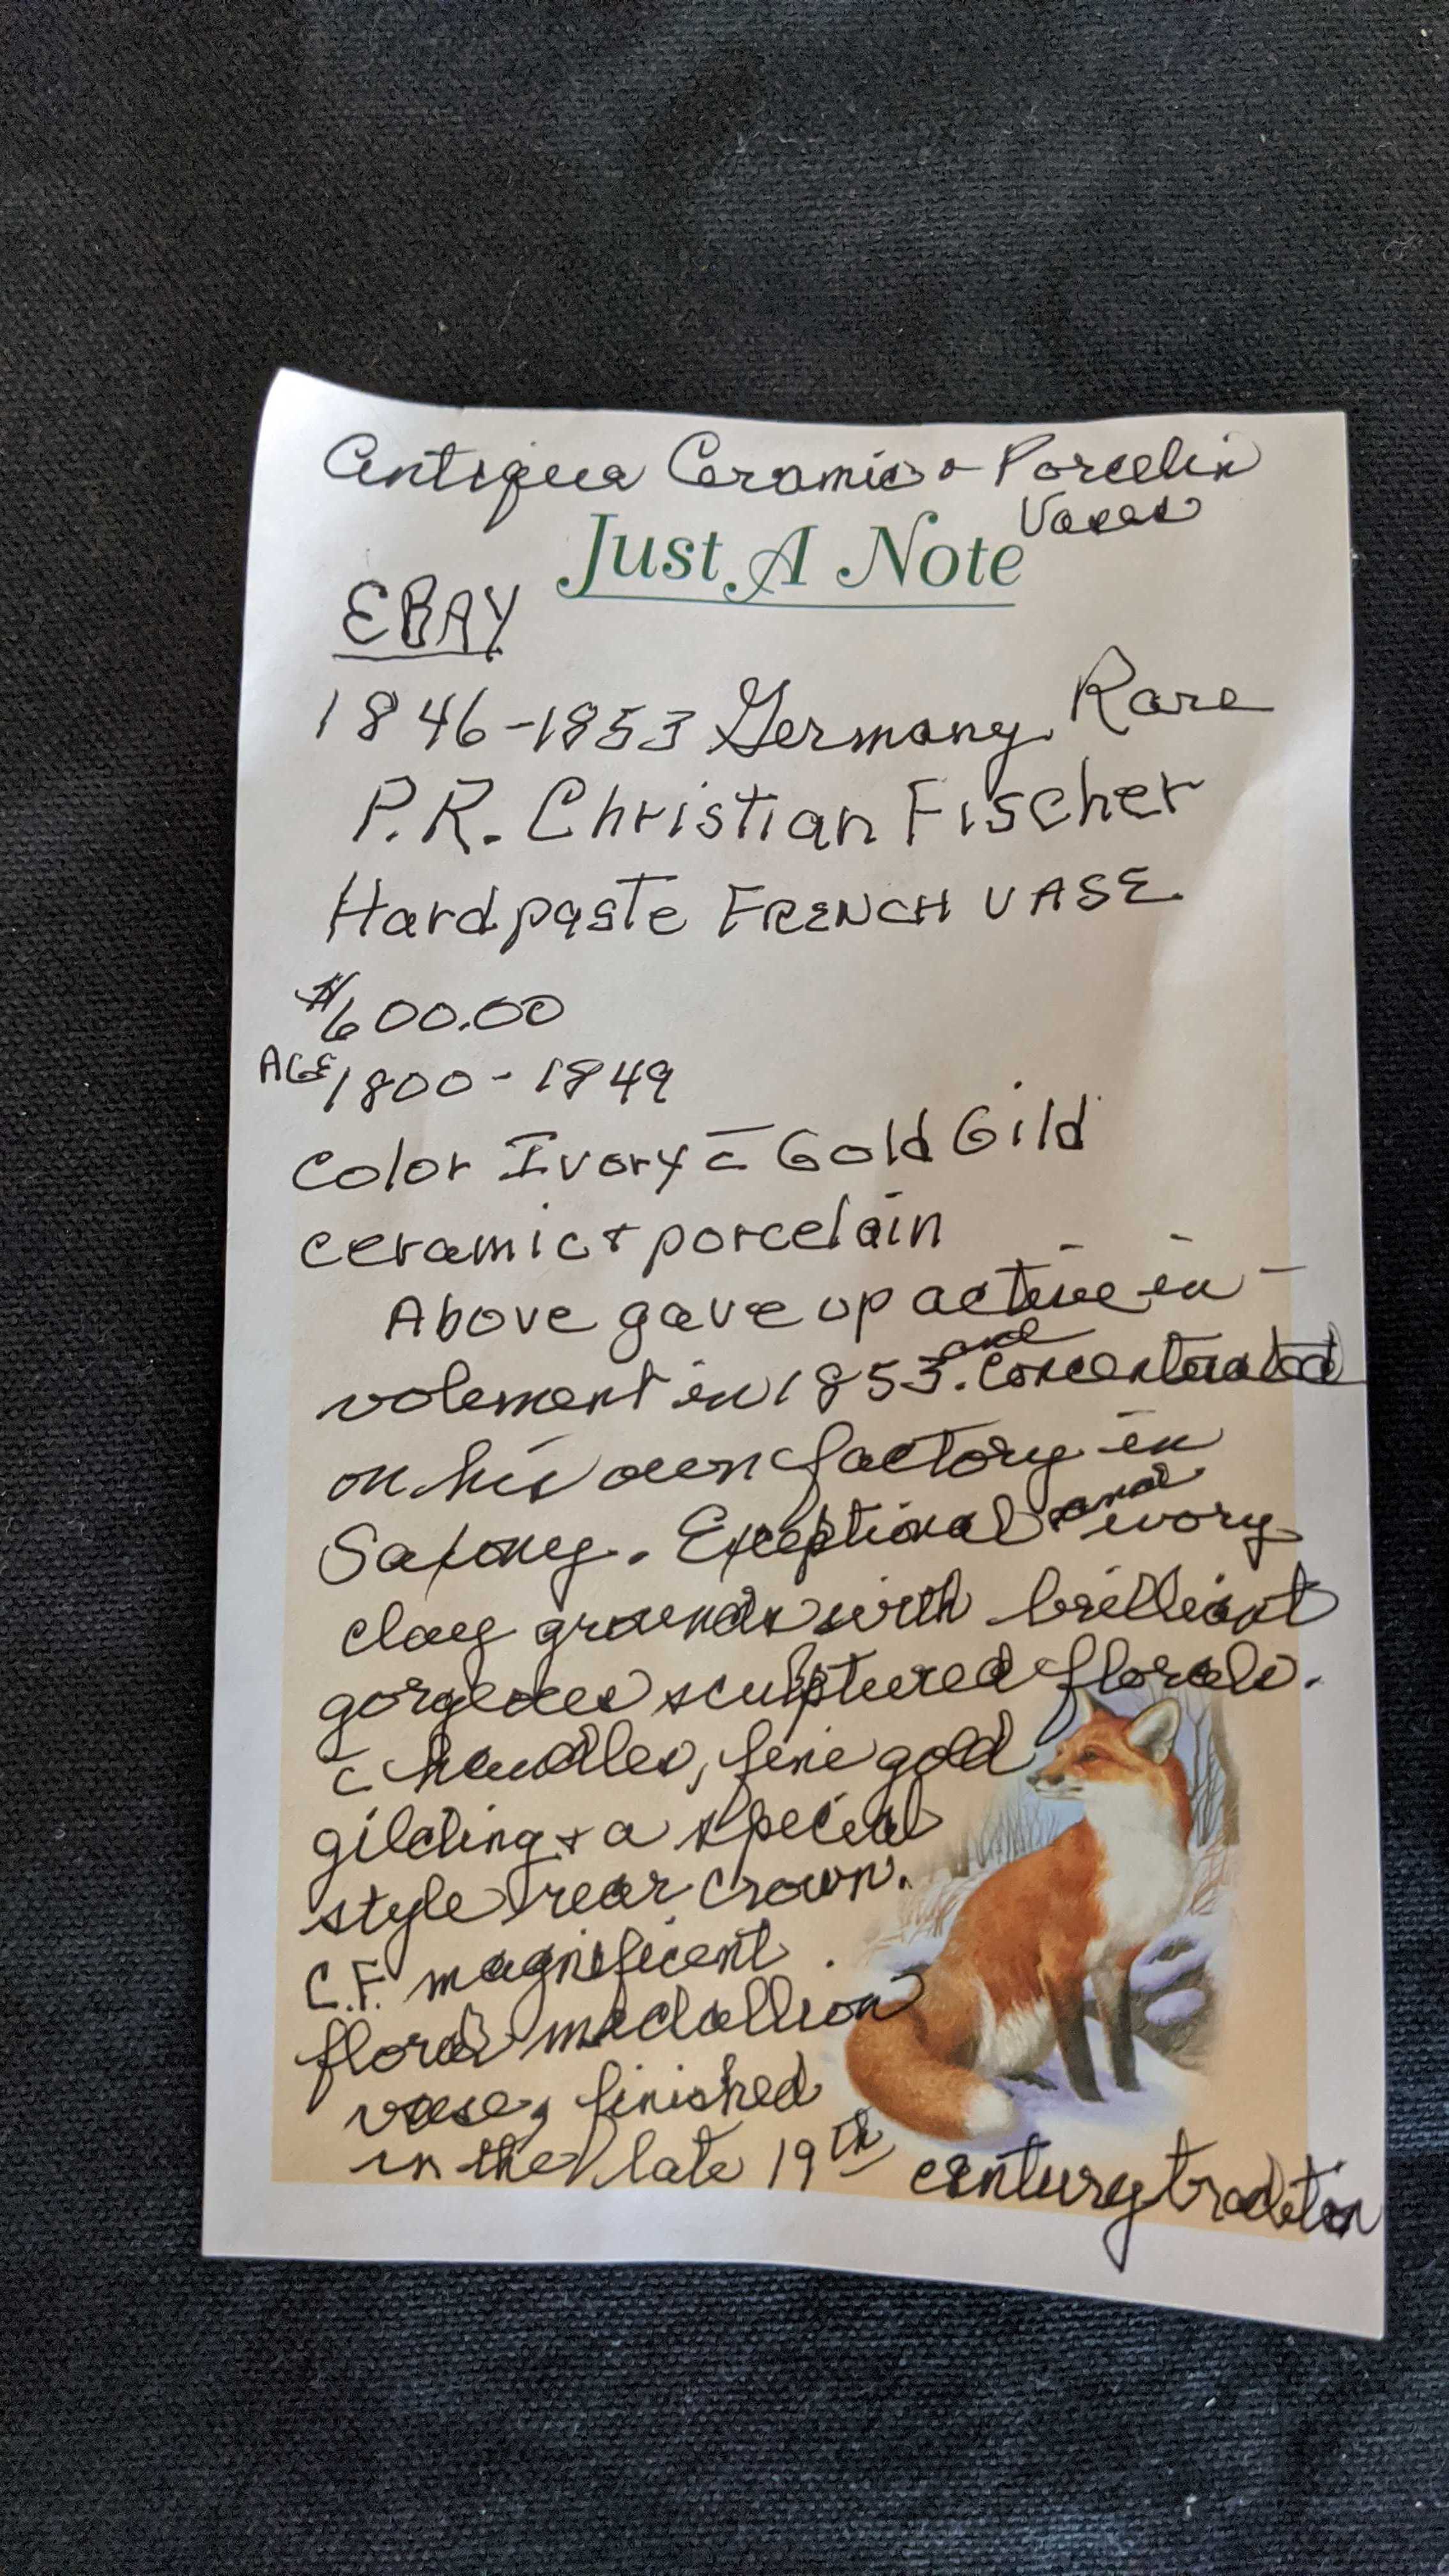 Antique Ceramic & Porcelin
Vases
Just A Note
EBAY
1846-1853 Germany. Rare
P.R. Christian Fischer
Hardpaste FRENCH VASE
$600.00
AGE 1800-1849
Color Ivory c̄ Gold Gild
ceramic & porcelain
Above gave up active in-
volement in 1853. and concentrated
on his own factory in
Saxony. Exceptional and ivory
clay grounds with brilliant
gorgeous sculptured florals.
c̄ handles, fine gold
gilding & a special
style rear crown.
C.F. magnificent
floral medallion
vase, finished
in the late 19th century tradition